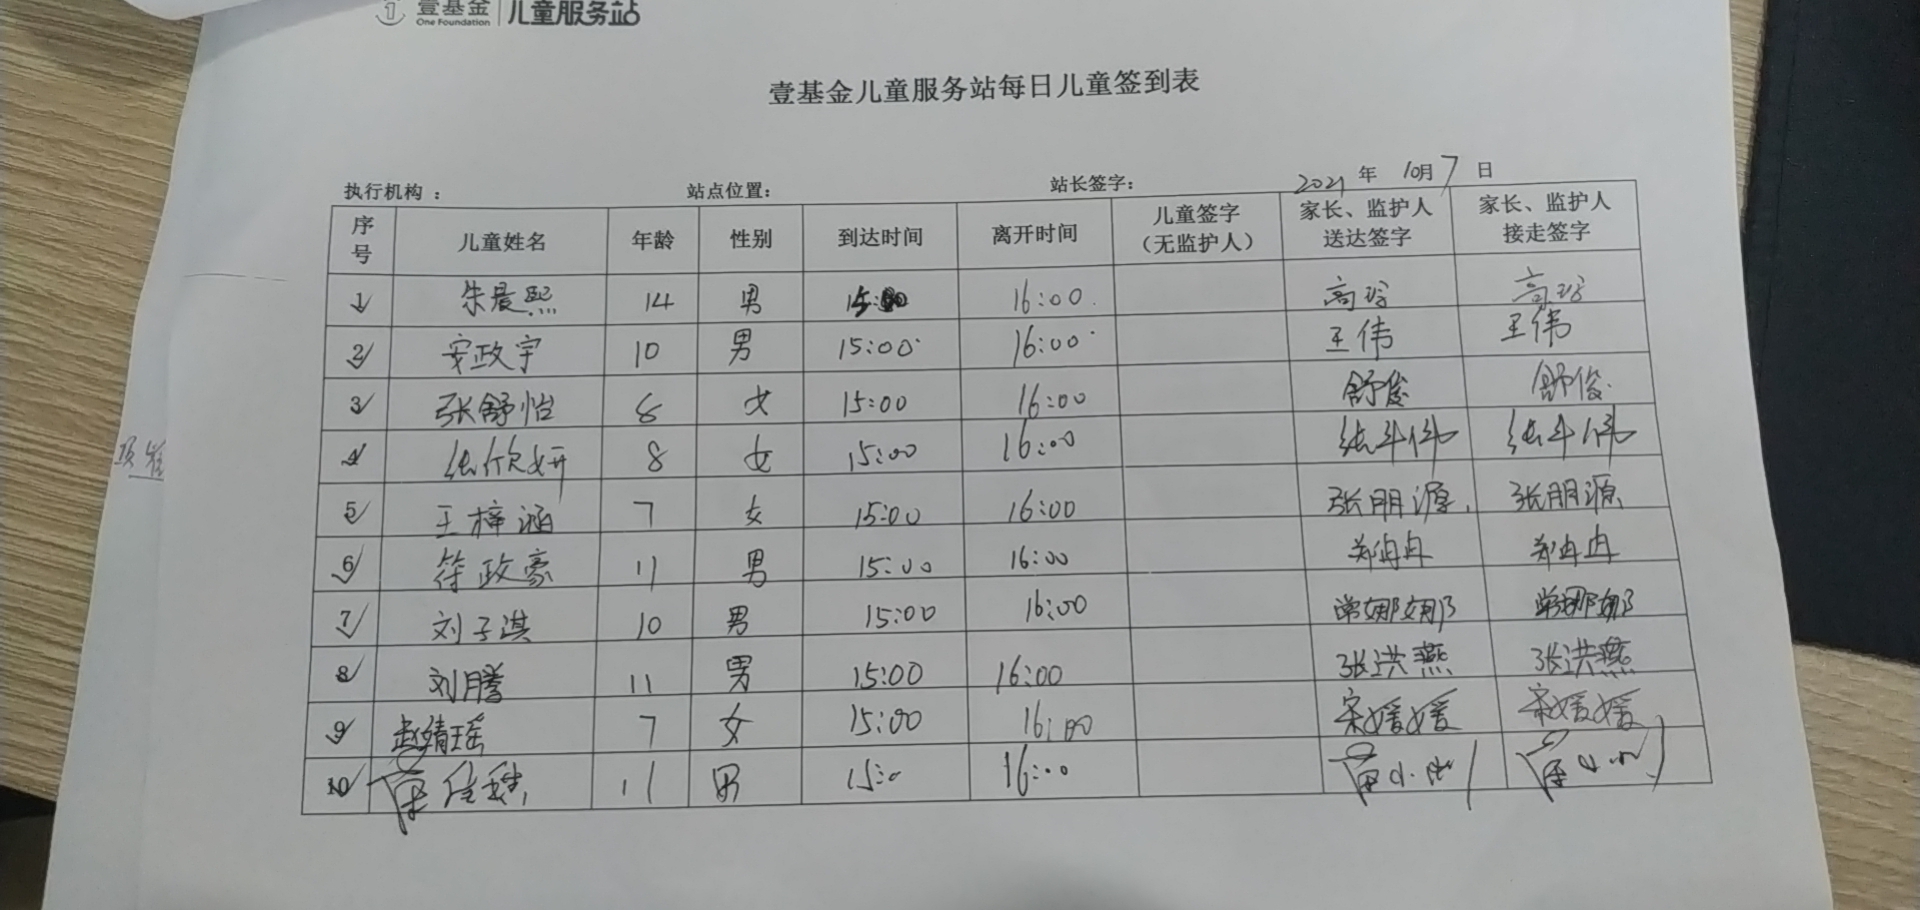 壹基金 One Foundation 儿童服务站
壹基金儿童服务站每日儿童签到表
执行机构： 站点位置： 站长签字： 2021 年 10月 7 日
序号 儿童姓名 年龄 性别 到达时间 离开时间 儿童签字（无监护人） 家长、监护人送达签字 家长、监护人接走签字
1 朱晨熙 14 男 15:00 16:00 高珍 高珍
2 安政宇 10 男 15:00 16:00 王伟 王伟
3 张舒怡 8 女 15:00 16:00 舒俊 舒俊
4 张欣妍 8 女 15:00 16:00 张斗伟 张斗伟
5 王梓涵 7 女 15:00 16:00 张朋源 张朋源
6 符政豪 11 男 15:00 16:00 郑冉冉 郑冉冉
7 刘子淇 10 男 15:00 16:00 常娜娜 常娜娜
8 刘腾 11 男 15:00 16:00 张洪燕 张洪燕
9 赵婧瑶 7 女 15:00 16:00 宋媛媛 宋媛媛
10 11 男 15:0 16:00